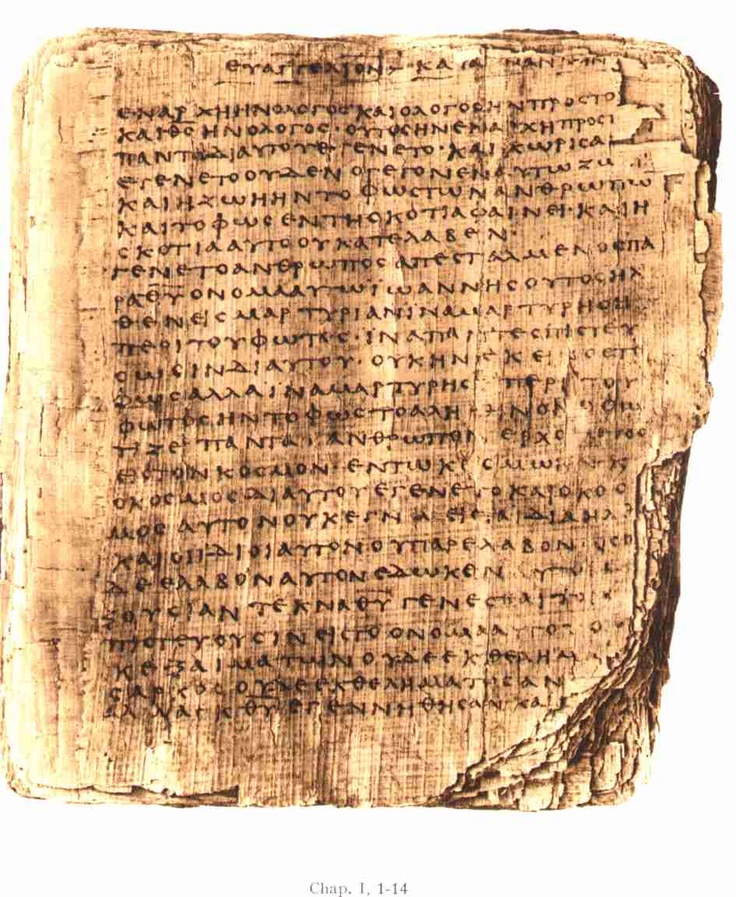 ΕΥΑΓΓΕΛΙΟΝ ΚΑΤΑ
ΕΝΑΡΧΗΗΝΟΛΟΓΟϹΚΑΙΟΛΟΓΟϹΗΝΠΡΟϹΤΟ
ΚΑΙΘ̅Ϲ̅ΗΝΟΛΟΓΟϹ·ΟΥΤΟϹΗΝΕΝΑΡΧΗΠΡΟϹ
ΠΑΝΤΑΔΙΑΥΤΟΥΕΓΕΝΕΤΟ·ΚΑΙΧΩΡΙϹΑ
ΕΓΕΝΕΤΟΟΥΔΕΝΟΓΕΓΟΝΕΝΑΥΤΩΖΩ
ΚΑΙΗΖΩΗΗΝΤΟΦΩϹΤΩΝΑΝΘΡΩΠΩ
ΚΑΙΤΟΦΩϹΕΝΤΗϹΚΟΤΙΑΦΑΙΝΕΙ·ΚΑΙΗ
ϹΚΟΤΙΑΑΥΤΟΟΥΚΑΤΕΛΑΒΕΝ·
ΓΕΝΕΤΟΑΝΘΡΩΠΟϹΑΠΕϹΤΑΛΜΕΝΟϹΠΑ
ΡΑΘ̅Υ̅ΟΝΟΜΑΑΥΤΩΙΩΑΝΝΗϹΟΥΤΟϹΗΛ
ΘΕΝΕΙϹΜΑΡΤΥΡΙΑΝΙΝΑΜΑΡΤΥΡΗϹΗ
ΠΕΡΙΤΟΥΦΩΤΟϹ·ΙΝΑΠΑΝΤΕϹΠΙϹΤΕΥ
ϹΩϹΙΝΔΙΑΥΤΟΥ·ΟΥΚΗΝΕΚΕΙΝΟϹΤΟ
ΦΩϹΑΛΛΑΙΝΑΜΑΡΤΥΡΗϹΗΠΕΡΙΤΟΥ
ΦΩΤΟϹΗΝΤΟΦΩϹΤΟΑΛΗΘΙΝΟΝΟΦΩ
ΤΙΖΕΙΠΑΝΤΑΑΝΘΡΩΠΟΝΕΡΧΟΜΕΝΟΝ
ΕΙϹΤΟΝΚΟϹΜΟΝ·ΕΝΤΩΚΟϹΜΩΗΝΚ
ΟΚΟϹΜΟϹΔΙΑΥΤΟΥΕΓΕΝΕΤΟΚΑΙΟΚΟϹ
ΜΟϹΑΥΤΟΝΟΥΚΕΓΝΩΕΙϹΤΑΙΔΙΑΗΛ
ΚΑΙΟΙΙΔΙΟΙΑΥΤΟΝΟΥΠΑΡΕΛΑΒΟΝ·ΟϹΟΙ
ΔΕΕΛΑΒΟΝΑΥΤΟΝΕΔΩΚΕΝΑΥΤΟΙϹ
ΞΟΥϹΙΑΝΤΕΚΝΑΘ̅Υ̅ΓΕΝΕϹΘΑΙΤΟΙϹ
ΠΙϹΤΕΥΟΥϹΙΝΕΙϹΤΟΟΝΟΜΑΑΥΤΟΥΟ
ΚΕΞΑΙΜΑΤΩΝΟΥΔΕΕΚΘΕΛΗΜ
ϹΑΡΚΟϹΟΥΔΕΕΚΘΕΛΗΜΑΤΟϹΑΝ
ΑΛΛΑΕΚΘ̅Υ̅ΕΓΕΝΝΗΘΗϹΑΝΚΑΙ
Chap. I, 1-14